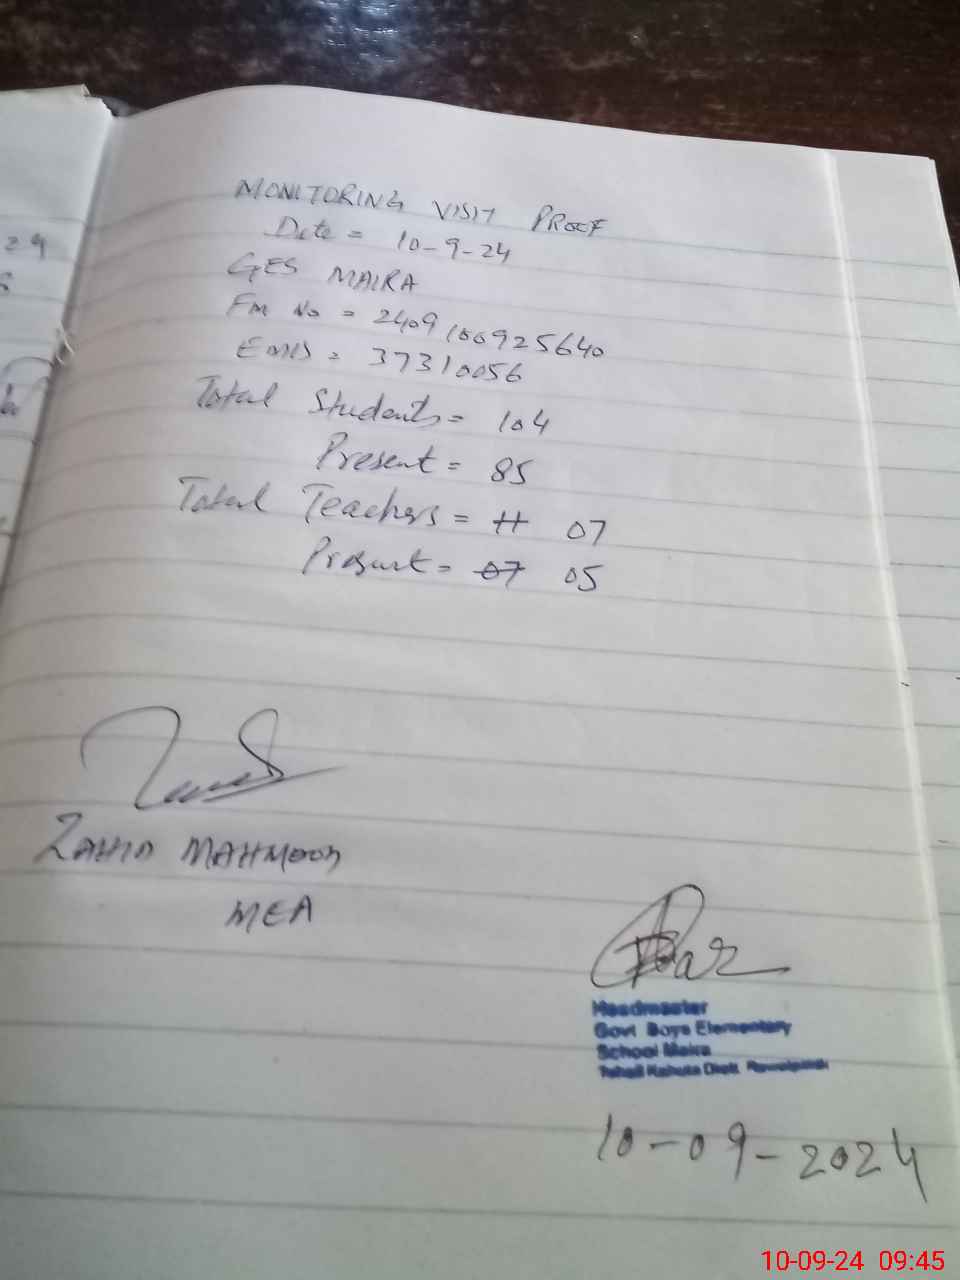 MONITORING VISIT PROOF
Date = 10-9-24
GES MAIRA
Fm No = 2409100925640
EMIS = 37310056
Total Students = 104
Present = 85
Total Teachers = 11 07
Present = 07 05
ZAHID MAHMOOD
MEA
Headmaster
Govt Boys Elementary
School Maira
Tehsil Kahuta Distt. Rawalpindi
10-09-2024
10-09-24 09:45